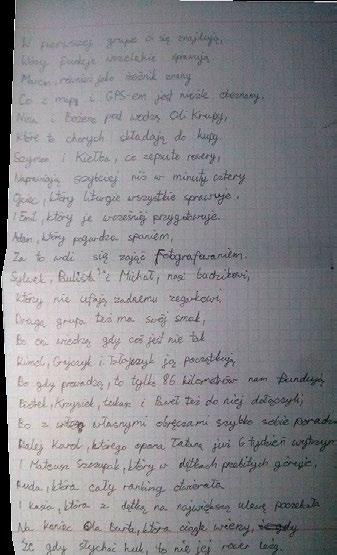 W pierwszej grupie ci się znajdują,
Którzy funkcje wszelakie sprawują
Marcin, również jako żeśnik znany
Co z mapą i GPS-em jest nieźle obeznany.
Nina i Bożena pod wodzą Oli Krupy,
Które to chorych składają do kupy.
Szymon i Kiełba, co zepsute rowery,
Naprawiają szybciej niż w minuty cztery
Ojciec, który liturgie wszystkie sprawuje.
I Emil, który je wcześniej przygotowuje.
Adam, który pogardza spaniem,
Za to woli się zająć Fotografowaniem.
Sylwek, i Michał, nasi budzikowi,
Którzy nie ufają żadnemu zegarkowi.
Druga grupa też ma swój smak,
Bo oni wiedzą gdy coś jest nie tak
i ją początkują
Bo gdy prowadzą, to tylko 86 kilometrów nam fundują
Bartek, Krzysiek, Łukasz i Paweł też do niej dołączyli,
Bo z własnymi obręczami szybko sobie
Dalej Karol, którego opona Tatuną już 6 tydzień
I Mateusz Szczupak, który w dętkach przebitych góruje,
Ruda, która cały ranking otwierała
I Kasia, która z dętką na największą ulewę poczekała
Na koniec Ola Bartk, która ciągle wierzy,
Że gdy słychać huk, to nie jej rower leży